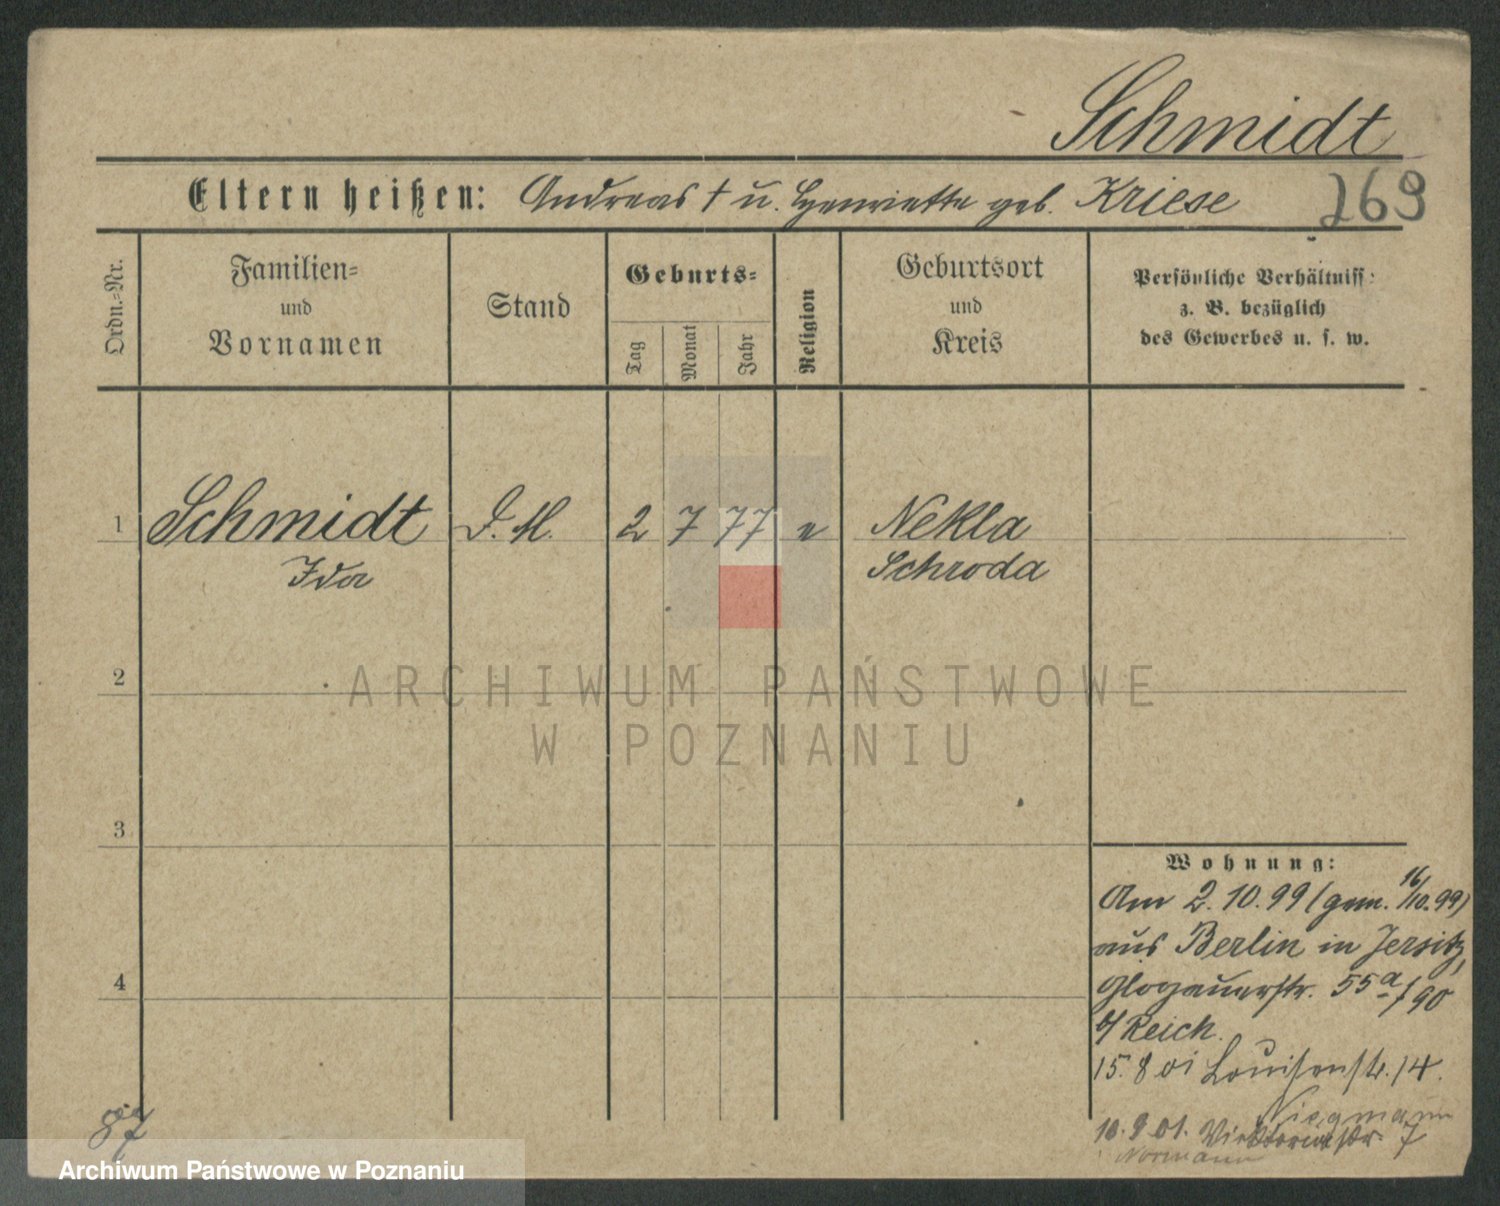 Schmidt
Eltern heißen: Andreas † u. Henriette geb. Kriese
269
Ordn.=Nr.
Familien=
und
Vornamen
Stand
Geburts=
Tag
Monat
Jahr
Religion
Geburtsort
und
Kreis
Persönliche Verhältniss
z. B. bezüglich
des Gewerbes u. s. w.
1 Schmidt D. M. 2 7 77 e Nekla
Ida Schroda
2
ARCHIWUM PAŃSTWOWE
W POZNANIU
3
4
Wohnung:
Am 2.10.99 (gem. 16/10.99)
aus Berlin in Jersitz,
Glogauerstr. 55a/90
b/ Reich.
15.8 01 Louisenstr. 14.
Niegmann
10.9.01. Viktoriastr. 7
Normann
87
Archiwum Państwowe w Poznaniu